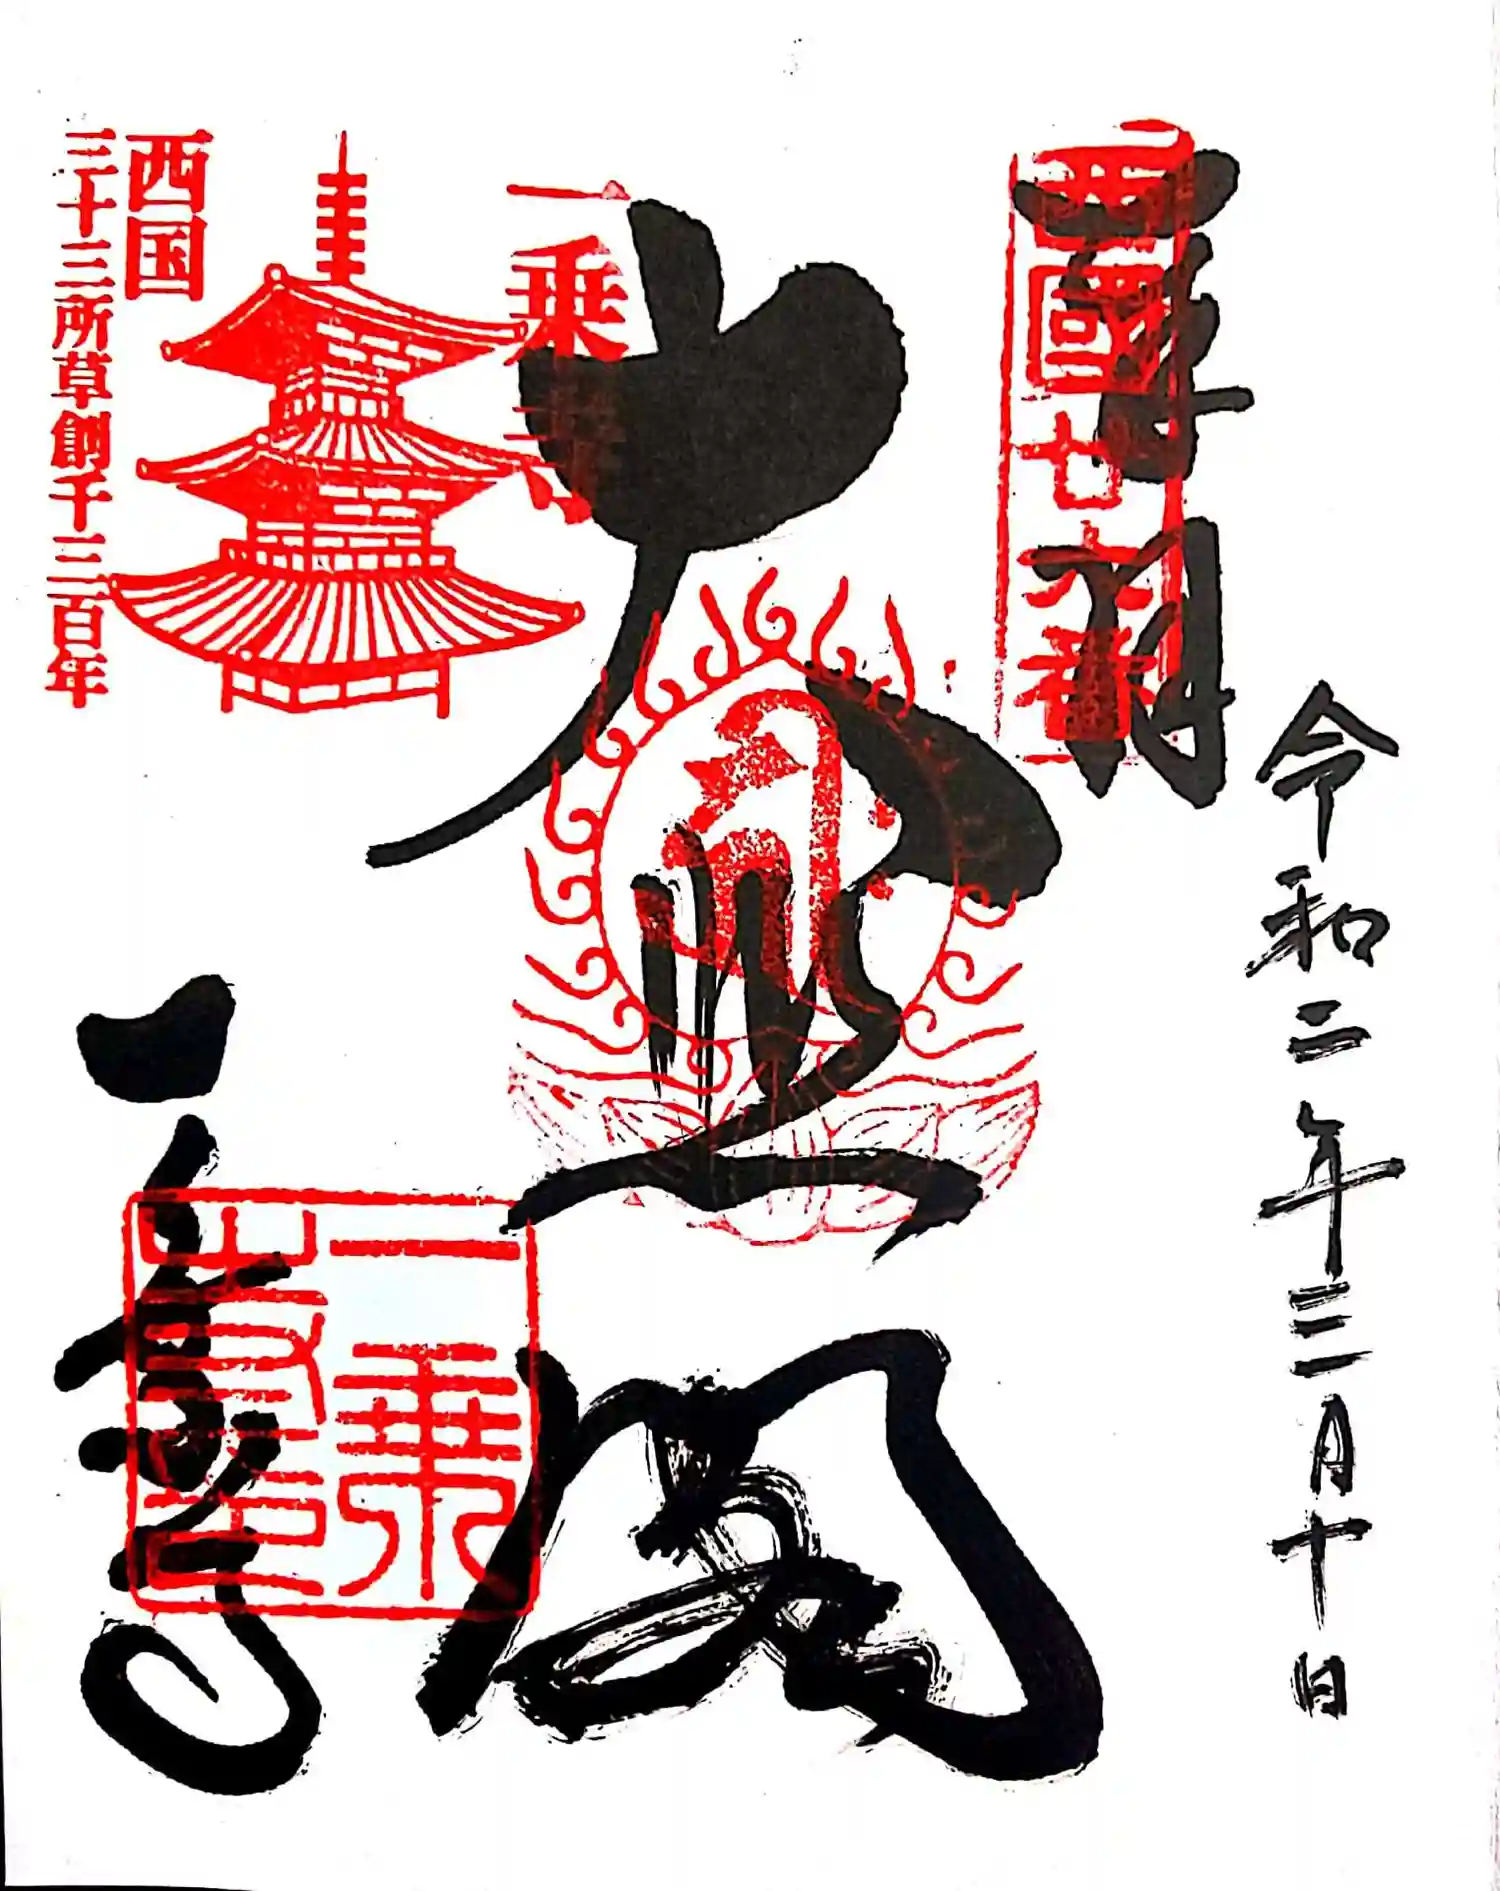 令和二年三月十日
奉拝
西國廿六番
大悲閣
一乗寺
一乗寺
一乗寺印
西国
三十三所草創千三百年